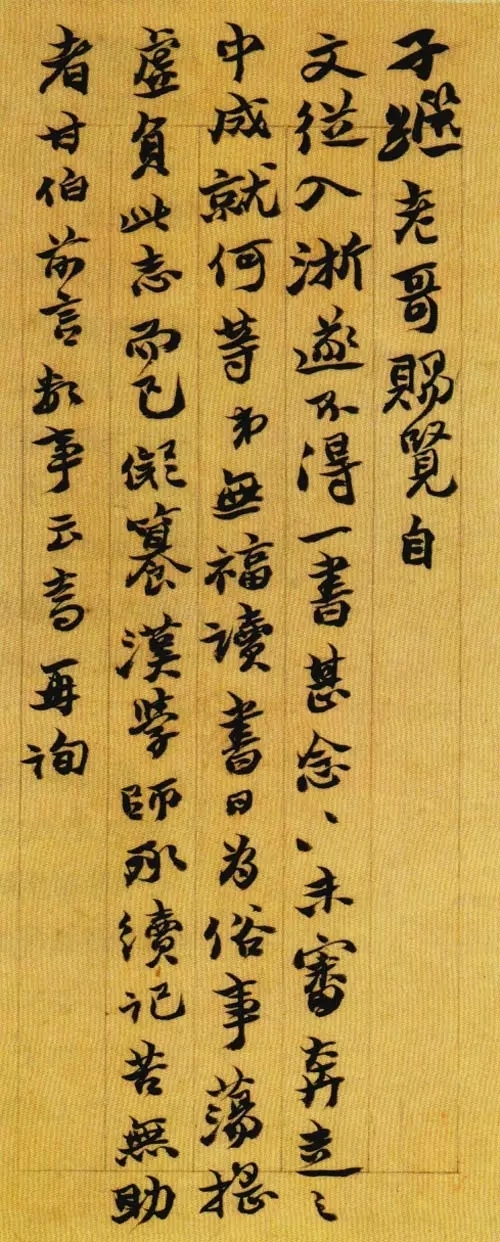 子繼老哥賜覽自
文從入浙遂不得一書甚念〻未審奔走之
中成就何等弟無福讀書日為俗事蕩摇
虛負此志而已儗纂漢學師承續記苦無助
者甘伯前言數事云嵩再詢